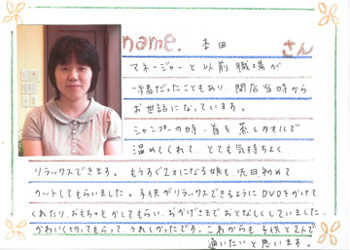 name. 本田 さん
マネージャーと以前職場が
一緒だったこともあり、開店当時から
お世話になっています。
シャンプーの時、首を蒸しタオルで
温めてくれて、とても気持ちよく
リラックスできます。もうすぐ2才になる娘も、先日初めて
カットしてもらいました。子供がリラックスできるようにDVDをかけて
くれたり、おもちゃもかしてもらい、おかげさまでおとなしくしていました。
かわいく切ってもらって、うれしかったです。これからも子供と2人で
通いたいと思います。